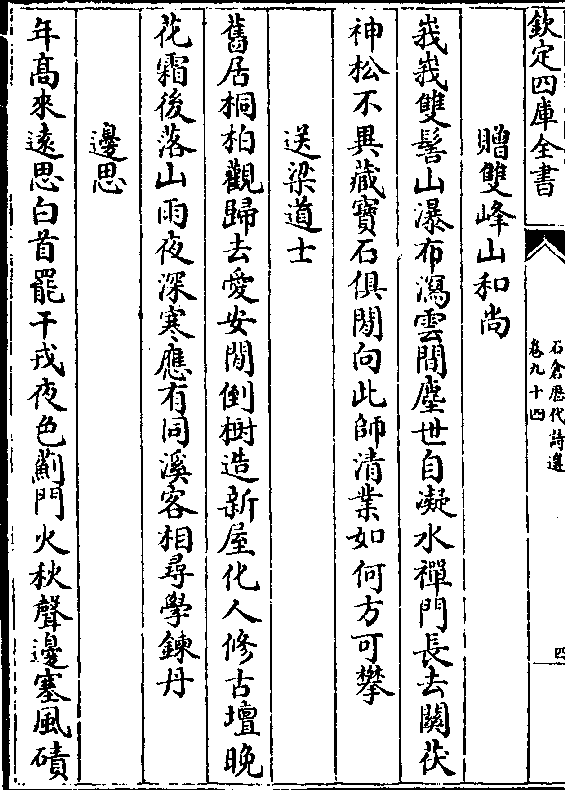 欽定四庫全書
石倉歴代詩選
卷九十四
四
贈雙峰山和尚
峩峩雙髻山瀑布瀉雲間塵世自凝水禪門長去關茯
神松不異藏寶石俱閒向此師清業如何方可攀
送梁道士
舊居桐柏觀歸去愛安閒倒樹造新屋化人修古壇晚
花霜後落山雨夜深寒應有同溪客相尋學鍊丹
邊思
年髙來遠思白首罷干戎夜色薊門火秋聲邊塞風磧